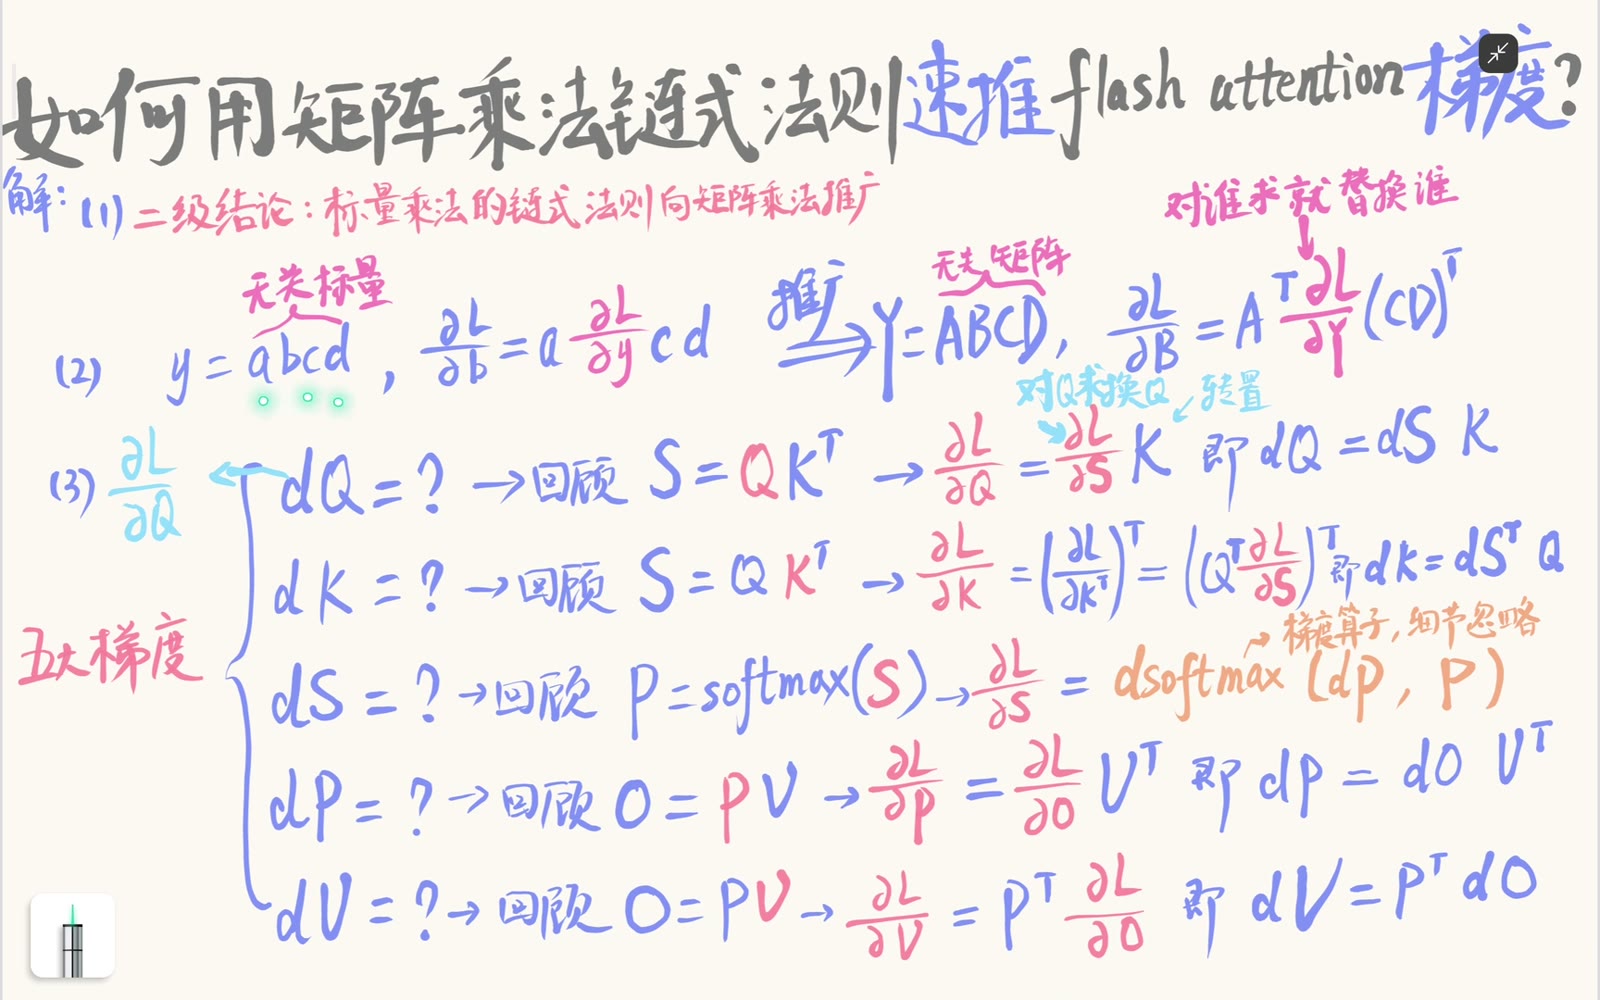 如何用矩阵乘法链式法则速推flash attention梯度?
解: (1) 二级结论: 标量乘法的链式法则向矩阵乘法推广
对谁求就替换谁
无关标量
推广
无关矩阵
(2) y = abcd, ∂L/∂b = a ∂L/∂y cd ⟹ Y = ABCD, ∂L/∂B = A^T ∂L/∂Y (CD)^T
对Q求换Q 转置
(3) ∂L/∂Q ← dQ = ? → 回顾 S = QK^T → ∂L/∂Q = ∂L/∂S K 即 dQ = dS K
dK = ? → 回顾 S = QK^T → ∂L/∂K = (∂L/∂K^T)^T = (Q^T ∂L/∂S)^T 即 dK = dS^T Q
五大梯度
梯度算子, 细节忽略
dS = ? → 回顾 P = softmax(S) → ∂L/∂S = dsoftmax (dP, P)
dP = ? → 回顾 O = PV → ∂L/∂P = ∂L/∂O V^T 即 dP = dO V^T
dV = ? → 回顾 O = PV → ∂L/∂V = P^T ∂L/∂O 即 dV = P^T dO